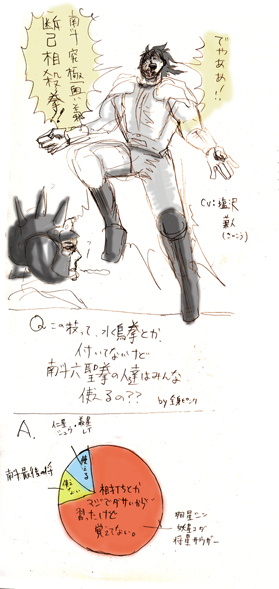 でやああ!!
南斗究極奥義
断己相殺拳!!
CV:塩沢
兼人
?
Q.この技って、水鳥拳とか
付いてないけど
南斗六聖拳の人達はみんな
使えるの??
A.
仁星
シュウ・義星
レイ
南斗最後の将
使える
使えない
相打ちとか
マジでダサいから
習ったけど
覚えてない。
殉星シン
妖星ユダ
将星サウザー